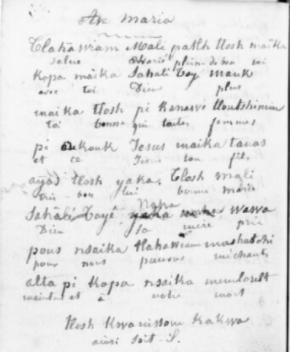 Ave Maria
Tlahawiam Mali pathl tlosh maika
salue Marie pleine de bon toi
kopa maika Sahali Tayé
avec toi Dieu plus
maika tlosh pi kanawé tloutshimen
toi bonne qui toutes femmes
pi okouk Jesus maika tanas
et ce Jesus ton fils
ayaq tlosh yaka. Tlosh Mali
bon lui bonne Marie
Naha
Sahali Tayé wawa
Dieu sa mère prie
pous nsaika tlahawiam mashatshi
pour nous pauvres méchants
alta pi kopa nsaika memloust
maintenant et à notre mort
tlosh kwanissom kakwa
ainsi soit-il.